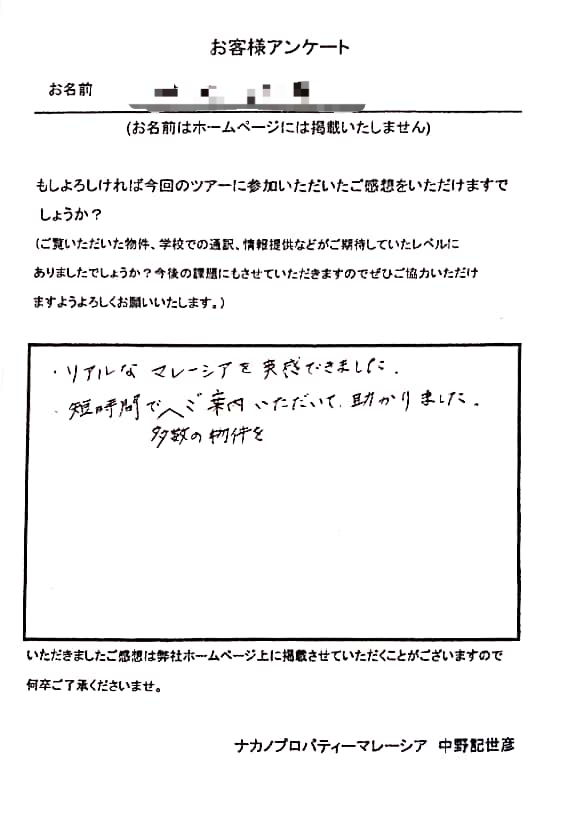 お客様アンケート
お名前
(お名前はホームページには掲載いたしません)
もしよろしければ今回のツアーに参加いただいたご感想をいただけますで
しょうか？
(ご覧いただいた物件、学校での通訳、情報提供などがご期待していたレベルに
ありましたでしょうか？今後の課題にもさせていただきますのでぜひご協力いただけ
ますようよろしくお願いいたします。)
・リアルな マレーシアを実感できました.
・短時間でご案内いただいて、助かりました.
多数の物件を
いただきましたご感想は弊社ホームページ上に掲載させていただくことがございますので
何卒ご了承くださいませ。
ナカノプロパティーマレーシア 中野記世彦